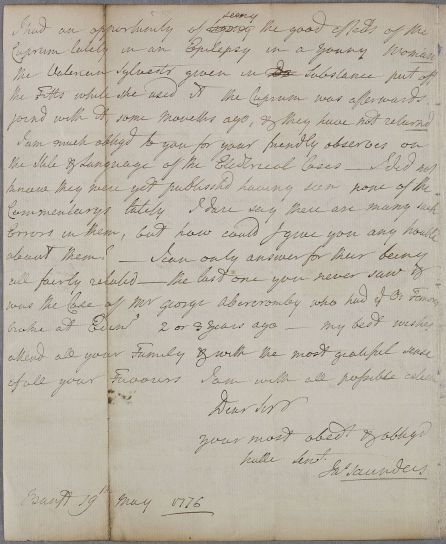 I had an opportunity of seeing the good effects of the
Cuprum lately in an Epilepsy in a young Woman
the Valerian Sylvestr given in substance put off
the Fitts while she used it the Cuprum was afterwards
joind with it, some months ago, & they have not returnd
I am much obligd to you for your friendly observes on
the Stile & Language of the Electrical Cases — I did not
know they were yet publishd having seen none of the
Commentarys lately I dare say there are many such
Errors in them, but how could I give you any trouble
about them? — I can only answer for their being
all fairly related — the last one you never saw &
was the Case of Mr George Abercromby who had
broke at Edinr 2 or 3 years ago — my best wishes
attend all your Family & with the most grateful sense
of all your Favours I am with all possible esteem
Dear Sir
your most obedt & obligd
hulle Servt
Jas Saunders
Banff 19th May 1776